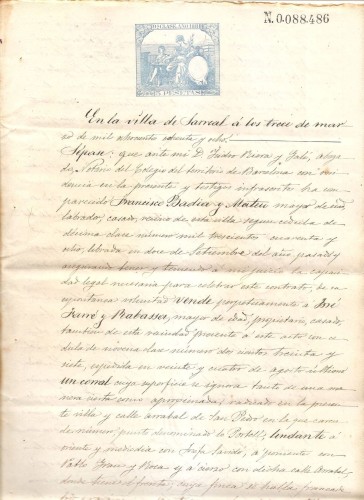 N.0.088.486
10ª CLASE. AÑO 1888
5 PESETAS
En la villa de Sarreal á los trece de mar-
zo de mil ochocientos ochenta y ocho.
Sépase: que ante mí D. Isidro y aboga-
do, Notario del Colegio del territorio de Barcelona con resi-
dencia en la presente y testigos infrascritos ha com-
parecido Francisco Badia y Mateu mayor de edad,
labrador, casado, vecino de esta villa segun cédula de
décima clase número mil trescientos cuarenta y
ocho, librada en doce de Setiembre del año pasado y
asegurando tener y teniendo á mi juicio la capaci-
dad legal necesaria para celebrar este contrato, de su
espontánea voluntad vende perpetuamente á José
Farré y Rabassó, mayor de edad, propietario, casado,
tambien de esta vecindad presente á este acto con cé-
dula de novena clase número dos cientos treinta y
siete, expedida en veinte y cuatro de agosto último
un corral cuya superficie se ignora tanto de una ma-
nera cierta como aproximada, radicado en la presen-
te villa y calle arrabal de San Pedro en la que carece
de número, punto denominado lo Portell; lindante á
oriente y mediodia con Josefa á poniente con
Pablo y Roca y á cierzo con dicha calle Arrabal,
donde tiene el frente; cuya finca se halla